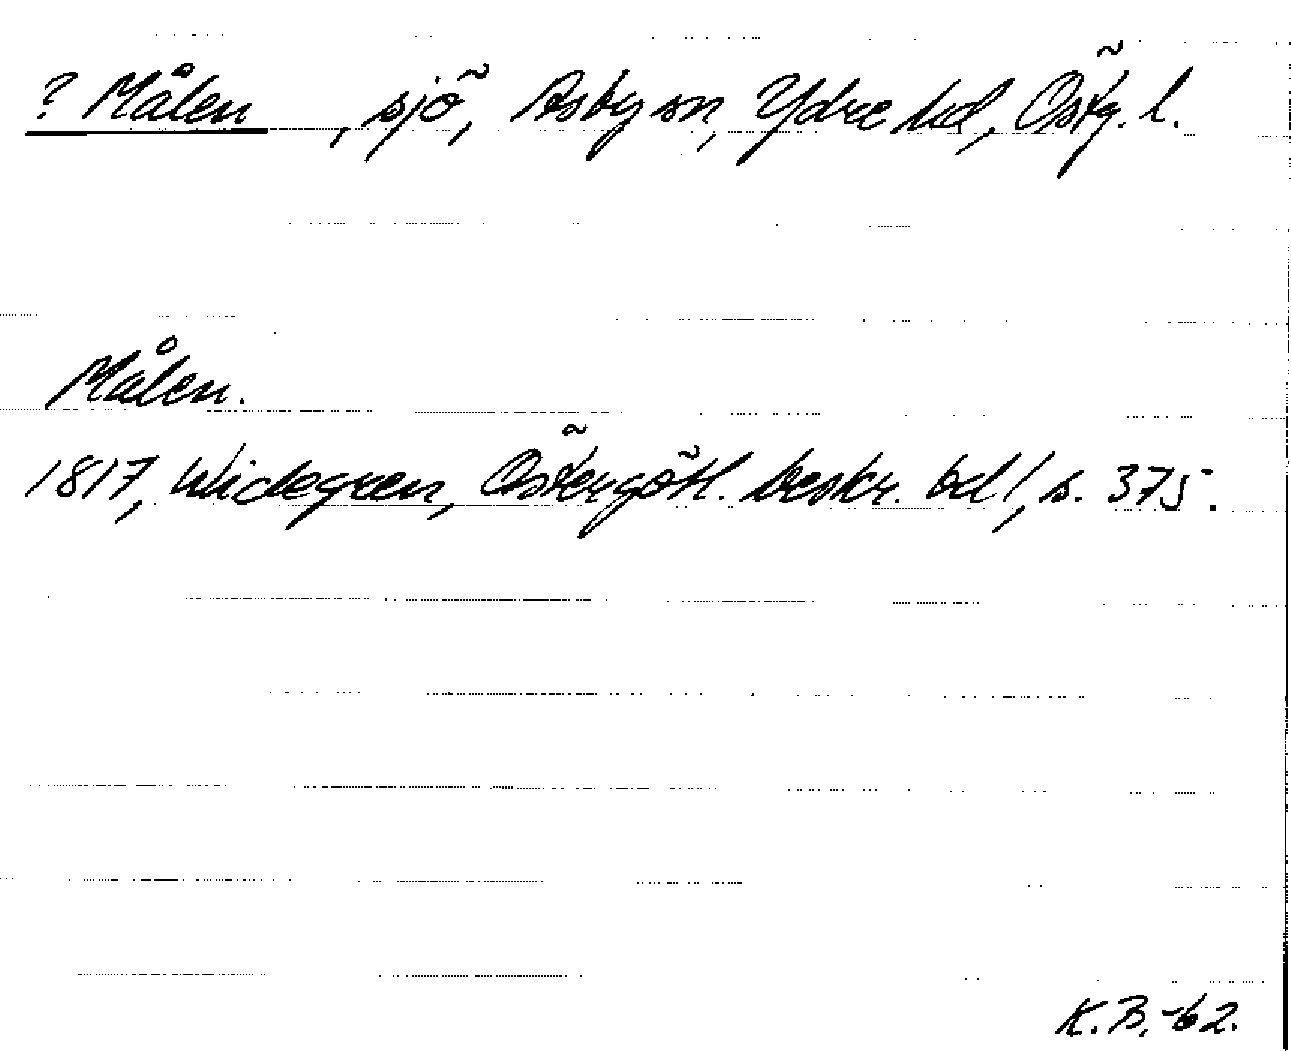 ? Målen, sjö, Asby sn, Ydre hd, Östg. l.
Målen.
1817, Widegren, Östergötl. beskr. bd 1, s. 375.
K.B.-62.